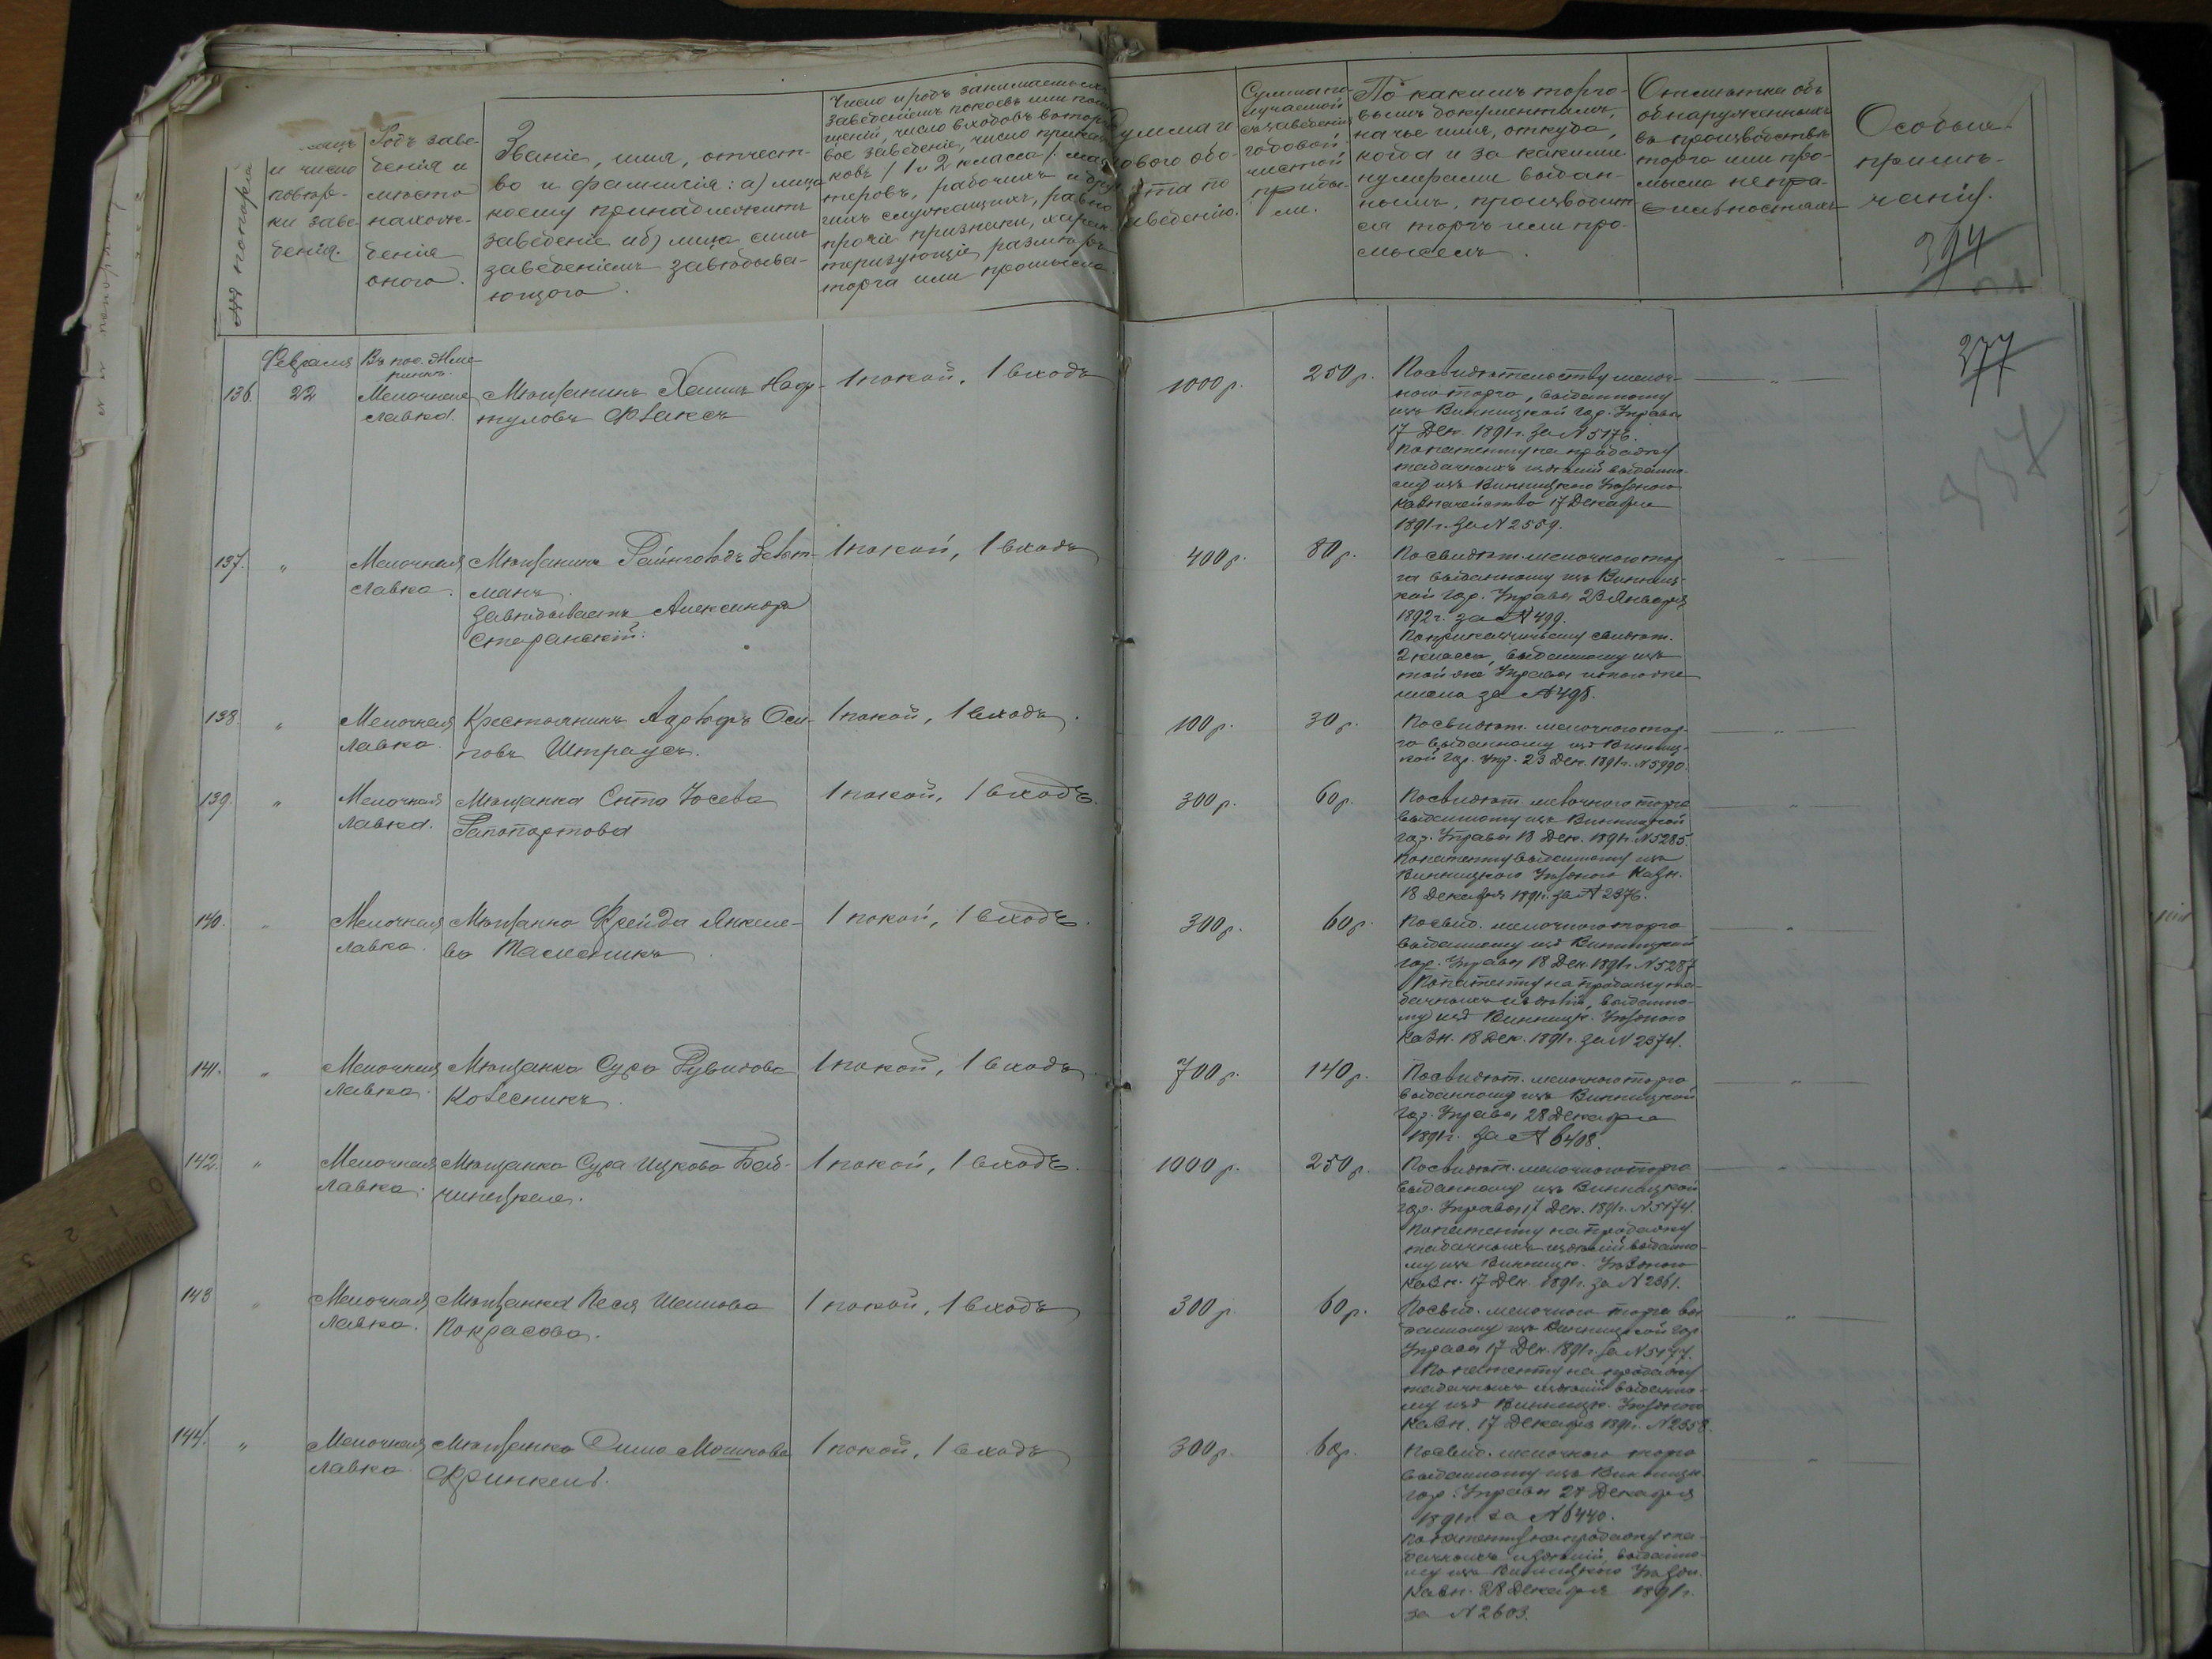 №№ по порядку
и число
повѣр-
ки заве-
денія.
Родъ заве-
денія и
мѣсто
нахож-
денія
онаго.
Званіе, имя, отчест-
во и фамилія: а) лица
коему принадлежитъ
заведеніе и б) лица симъ
заведеніемъ завѣдыва-
ющаго.
Число и родъ занимаемыхъ
заведеніемъ покоевъ или
число входовъ въ
вое заведеніе, число
ковъ / 1 и 2 класса /:
теровъ, рабочихъ и
гихъ служащихъ, равно
прочіе признаки,
теризующіе размѣръ
торга или промысла.
Сумма г
ового обо-
та по
аведенію.
Сумма по-
лучаемой
съ заведенія
годовой
чистой
прибы-
ли.
По какимъ торго-
вымъ документамъ,
на чье имя, откуда,
когда и за какими
нумерами выдан-
нымъ, производит-
ся торгъ или про-
мыселъ.
Отмѣтка объ
обнаруженныхъ
въ производствѣ
торга или про-
мысла непра-
вильностяхъ
Особыя
примѣ-
чанія.
394
277
Февраля
136. 22
Мелочная
лавка.
Мѣщанинъ Хаимъ
туловъ Факсъ
1 покой, 1 входъ
1000 р. 250 р.
По свидѣтельству мелоч-
ного торга, выданному
изъ Винницкой Гор. Управы
17 Дек. 1891 г. за № 5176.
По патенту на продажу
табачныхъ издѣлій выданно-
му изъ Винницкаго Уѣзднаго
Казначейства 17 Декабря
1891 г. за № 2559.
137. "
Мелочная
лавка.
Мѣщанинъ
манъ.
Завѣдываетъ Александръ
Старанскій.
1 покой, 1 входъ
400 р. 80 р.
По свидѣт. мелочного тор
га выданному изъ Винниц-
кой Гор. Управы 23 Января
1892 г. за № 499.
По прикащичьему свидѣт.
2 класса, выданному изъ
той же Управы и того же
числа за № 498.
138. "
Мелочная
лавка.
Крестьянинъ Адольфъ Оси-
повъ Штраусъ.
1 покой, 1 входъ.
100 р. 30 р.
По свидѣт. мелочного тор-
га выданному изъ Винниц-
кой Гор. Упр. 23 Дек. 1891 г. № 5990.
139. "
Мелочная
лавка.
Мѣщанка Сита Іосева
Рапопортова
1 покой, 1 входъ.
300 р. 60 р.
По свидѣт. мелочного торга
выданному изъ Винницкой
гор. Управы 18 Дек. 1891 г. № 5285.
По патенту выданному изъ
Винницкаго Уѣзднаго Казн.
18 Декабря 1891 г. за № 2376.
140. "
Мелочная
лавка.
Мѣщанка Фрейда Янкеле-
ва
1 покой, 1 входъ.
300 р. 60 р.
По свид. мелочного торга
выданному изъ Винницкой
гор. Управы 18 Дек. 1891 г. № 5287
По патенту на продажу та-
бачныхъ издѣлій, выданно-
му изъ Винницк. Уѣзднаго
Казн. 18 Дек. 1891 г. за № 2374.
141. "
Мелочная
лавка.
Мѣщанка Сура Рувинова
Колесникъ.
1 покой, 1 входъ.
700 р. 140 р.
По свидѣт. мелочного торга
выданному изъ Винницкой
Гор. Управы 28 Декабря
1891 г. за № 6408.
142. "
Мелочная
лавка.
Мѣщанка Сура Ицкова Бай-
чинецкая.
1 покой, 1 входъ.
1000 р. 250 р.
По свидѣт. мелочного торга
выданному изъ Винницкой
гор. Управы 17 Дек. 1891 г. № 5174.
По патенту на продажу
табачныхъ издѣлій выданно-
му изъ Винницк. Уѣзднаго
Казн. 17 Дек. 1891 г. за № 2361.
143 "
Мелочная
лавка.
Мѣщанка Песя
Покрасова.
1 покой, 1 входъ
300 р. 60 р.
По свид. мелочного торга вы
данному изъ Винницкой гор
Управы 17 Дек. 1891 г. за № 5177.
По патенту на продажу
табачныхъ издѣлій выданно-
му изъ Винницк. Уѣзднаго
Казн. 17 Декабря 1891 г. № 2358.
144. "
Мелочная
лавка.
Мѣщанка Сима Мошкова
Френкель.
1 покой, 1 входъ
300 р. 60 р.
По свид. мелочного торга
выданному изъ Винницк.
гор. Управы 28 Декабря
1891 г. за № 6440.
По патенту на продажу та-
бачныхъ издѣлій, выданно-
му изъ Винницкаго Уѣздн.
Казн. 28 Декабря 1891 г.
за № 2603.
0 1 2 3